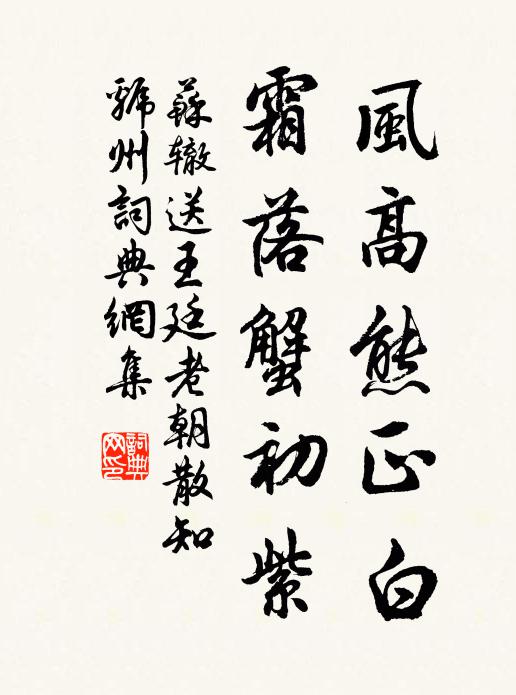 風高熊正白
霜落蟹初紫
蘇辙送王廷老朝散知
虢州詞典網集
詞典
网印